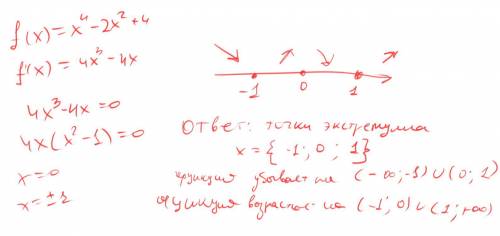 f(x)=x⁴-2x²+4
f'(x)=4x³-4x
4x³-4x=0
4x(x²-1)=0
x=0
x=±1
-1 0 1
Ответ: точки экстремума
x={-1; 0; 1}
функция убывает на (-∞;-1)∪(0; 1)
функция возрастает на (-1; 0)∪(1;+∞)